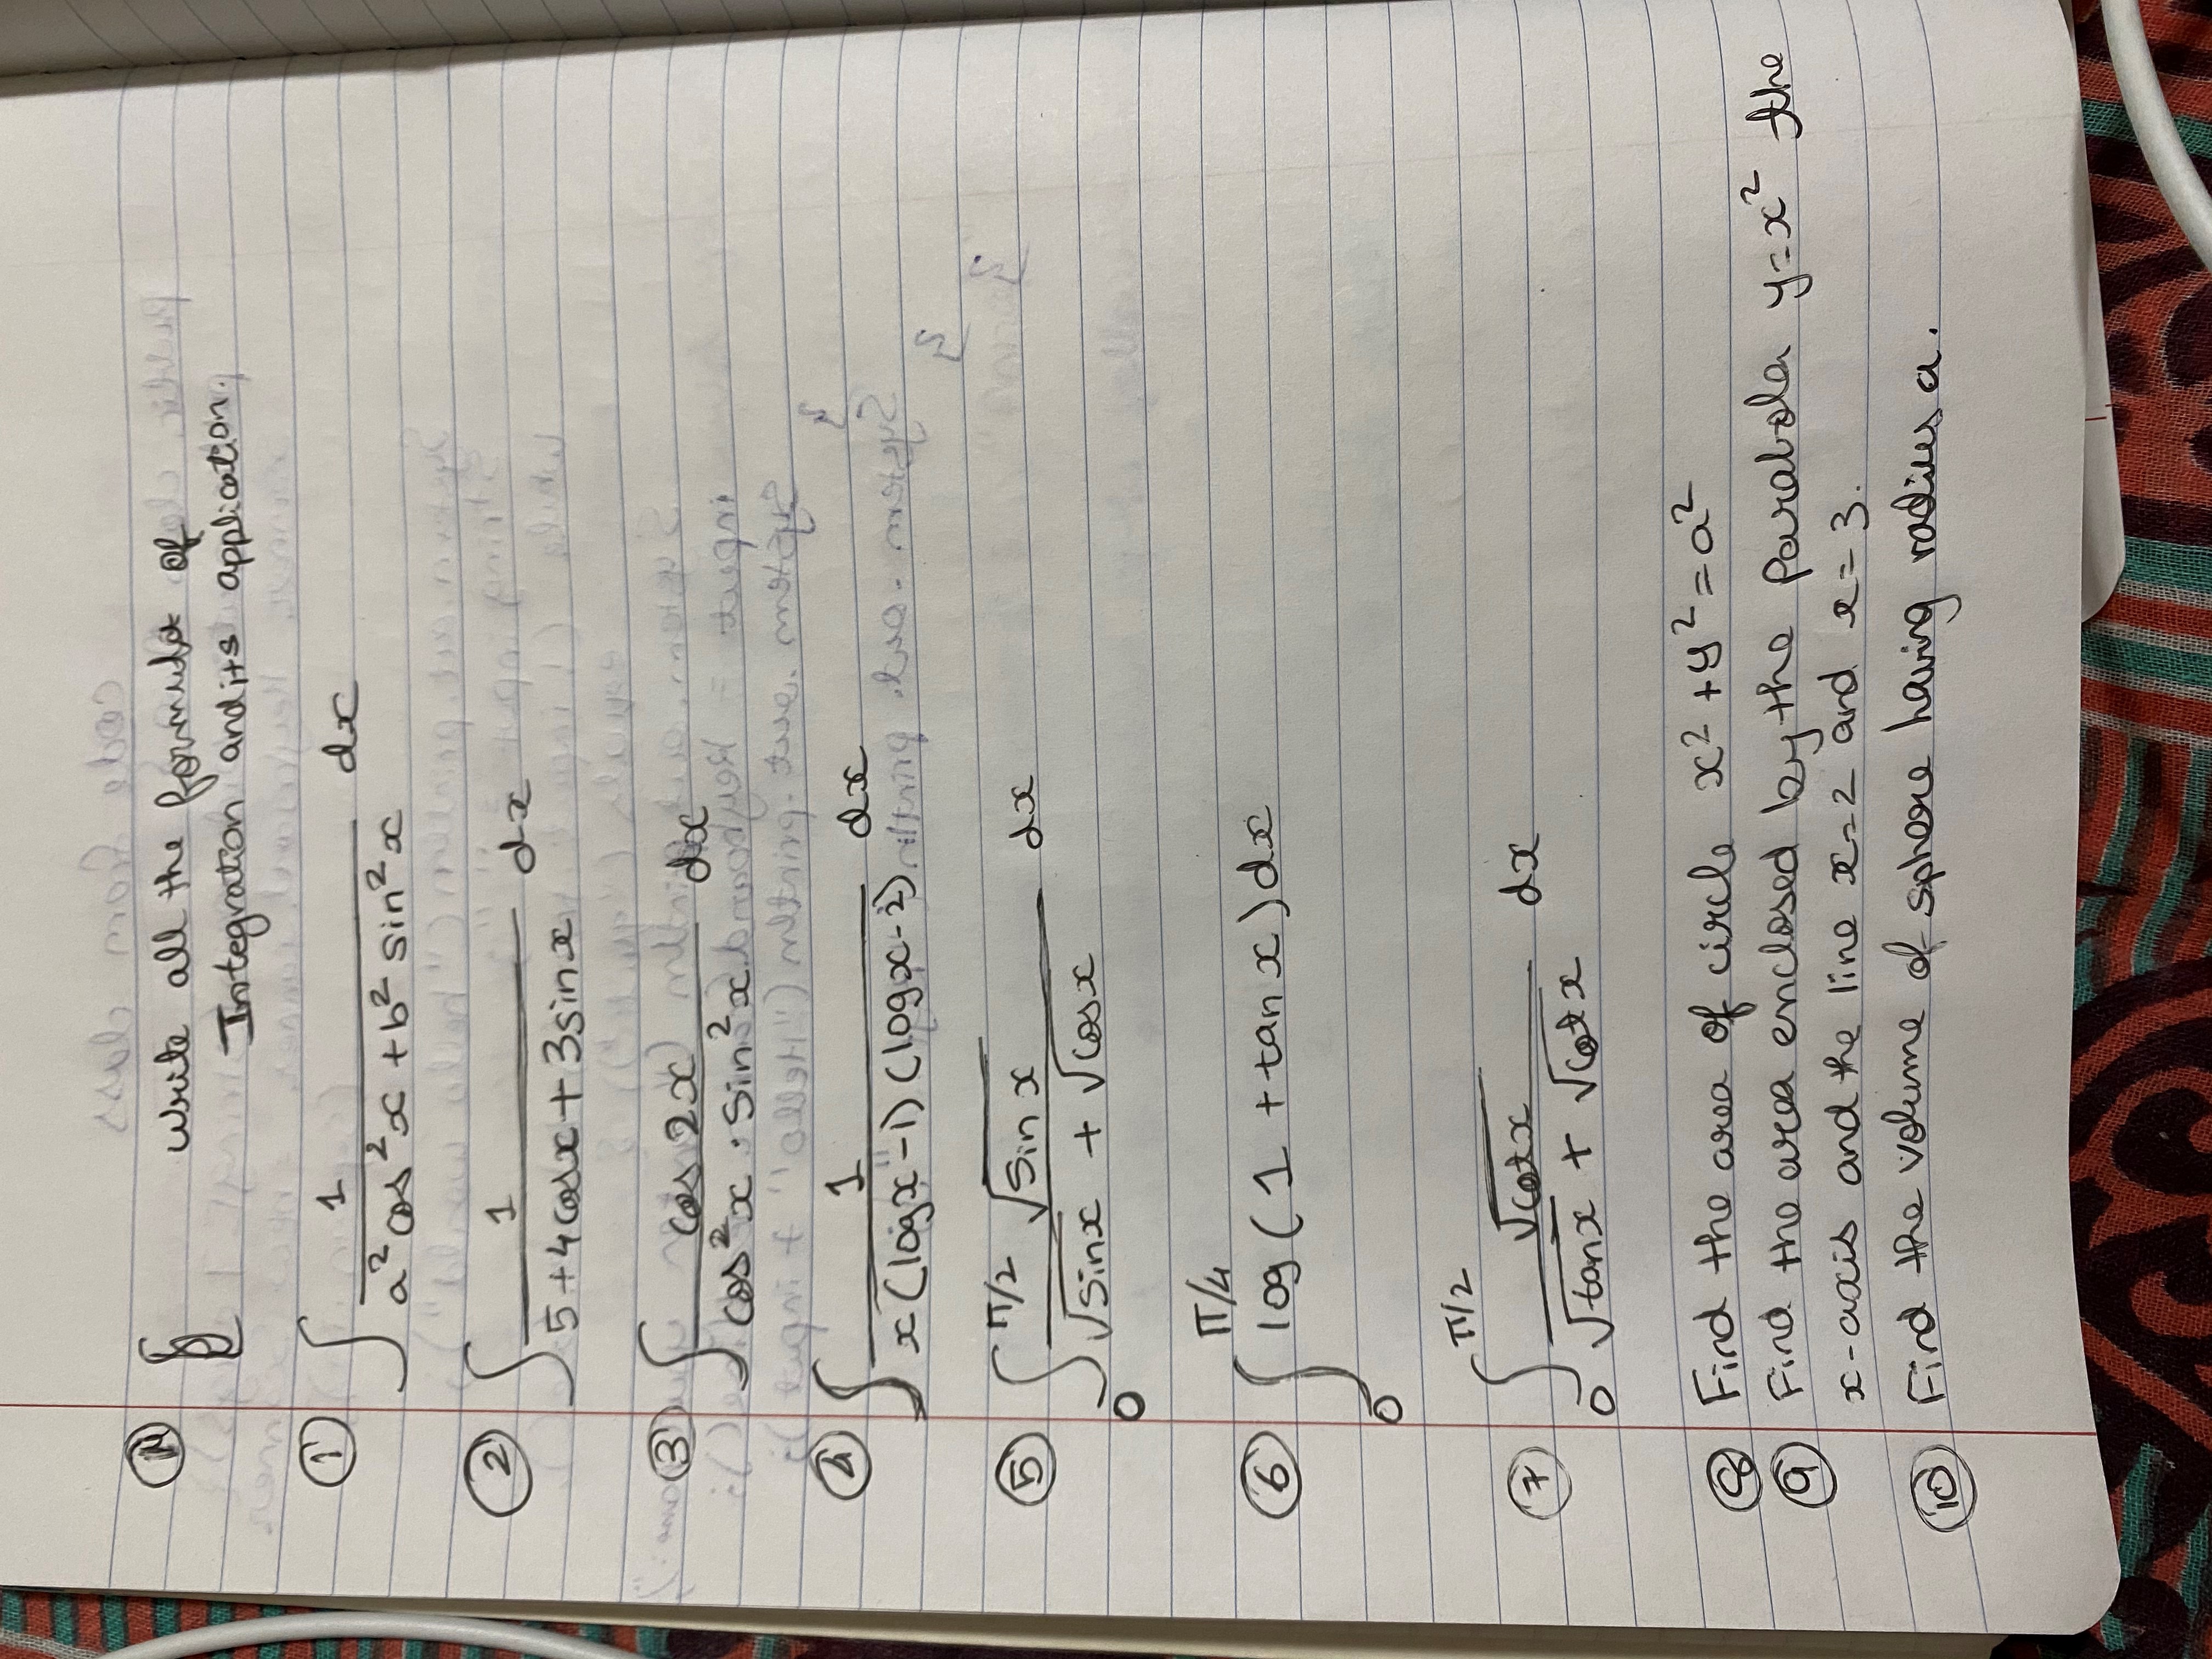 write all the formula of
Integration and its application.
① ∫ 1/(a² cos²x + b² sin²x) dx
② ∫ 1/(5+4cosx+3sinx) dx
③ ∫ cos2x/(cos²x · sin²x) dx
④ ∫ 1/(x(logx-1)(logx-2)) dx
⑤ ∫₀^π/2 √sinx/(√sinx + √cosx) dx
⑥ ∫₀^π/4 log(1+tanx)dx
⑦ ∫₀^π/2 √cotx/(√tanx + √cotx) dx
⑧ Find the area of circle x²+y²=a²
⑨ Find the area enclosed by the Parabola y=x² the
x-axis and the line x=2 and x=3.
⑩ Find the volume of sphere having radius a.